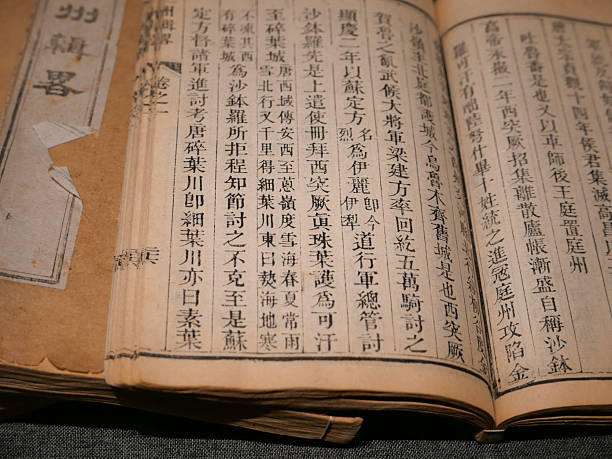 太宗貞觀十四年侯君集滅高昌
吐魯番是也又以車師後王庭置庭州
高帝永徽二年西突厥招集離散廬帳漸盛自稱沙鉢
羅可汗有咄陸弩什畢十姓統之進寇庭州攻陷金
城今烏魯木齊舊城是也西突厥
賀魯之亂武候大將軍梁建方率回紇五萬騎討之
顯慶二年以蘇定方名烈為伊麗即今伊犂道行軍總管討
沙鉢羅先是上遣使冊拜西突厥眞珠葉護為可汗
至碎葉城唐西域傳安西至蔥嶺度雪海春夏常雨雪北行又千里得細葉川東曰熱海地寒
不凍其西有碎葉城為沙鉢羅所拒程知節討之不克至是蘇
定方督諸軍進討考唐碎葉川卽細葉川亦曰素葉
州輯畧
卷之一
州輯畧